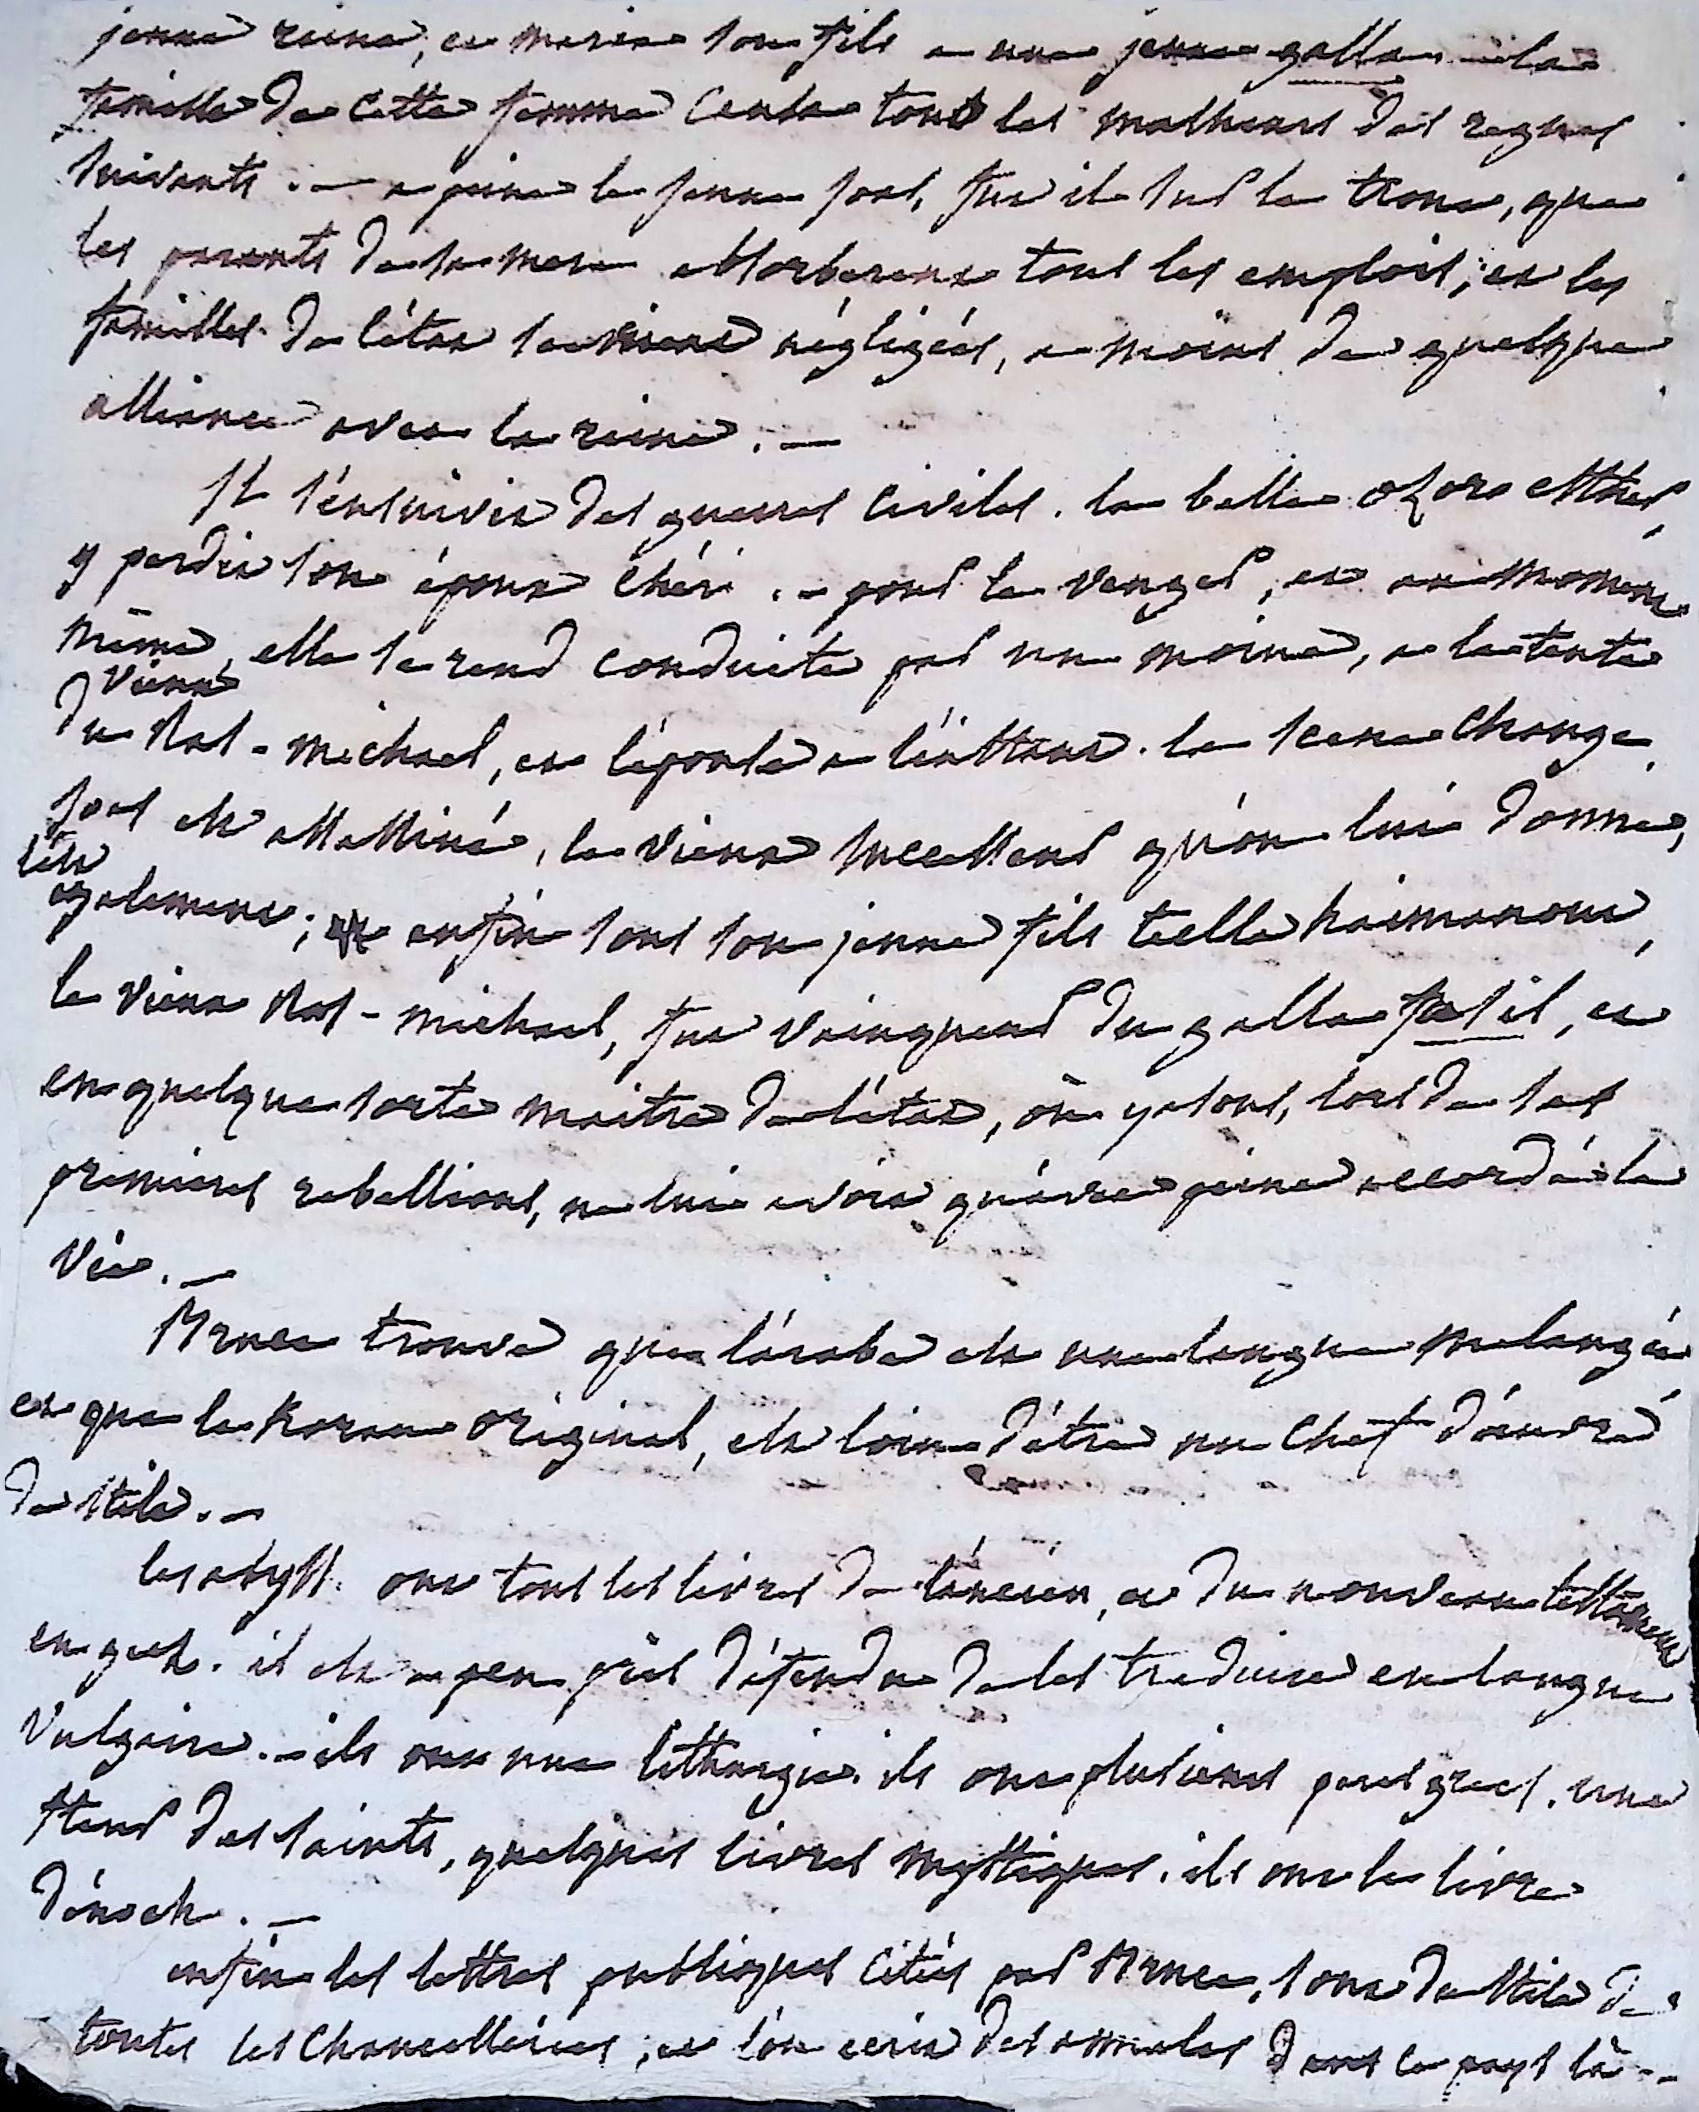 jeune reine, et maria son fils a une jeune galla. la
famille de cette femme causa tous les malheurs des regnes
suivants. — a peine le jeune joas, fut il sur le trone, que
les parents de sa mere absorberent tous les emplois, et les
familles de l'état se virent négligées, a moins de quelque
alliance avec la reine. —
Il s'ensuivit des guerres civiles. la belle ozoro esther,
y perdit son époux chéri. – pour le venger, et au moment
même, elle se rend conduite par un moine, a la tente
du vieux
Ras - michael, et l'épouse a l'instant. la scene change,
joas est assassiné, le vieux successeur qu'on lui donne,
l'est
egalement; enfin sous son jeune fils tecla haimanout,
le vieux Ras - michael, fut vainqueur du galla fasil, et
en quelque sorte maitre de l'état, où yasous, lors de ses
premieres rebellions, ne lui avoit qu'avec peine accordé la
vie. —
Bruce trouve que l'arabe est une langue melangée,
et que le Koran original, est loin d'être un chef d'œuvre
de stile. —
les abyss. ont tous les livres de l'ancien, et du nouveau testament
en geez. il est a peu près défendu de les traduire en langue
vulgaire. – ils ont une lithurgie. ils ont plusieurs peres grecs. une
fleur des saints, quelques livres mystiques. ils ont le livre
d'énoch. —
enfin les lettres publiques citées par Bruce, sont du stile de
toutes les chancelleries, et l'on ecrit des annales dans ce pays là --